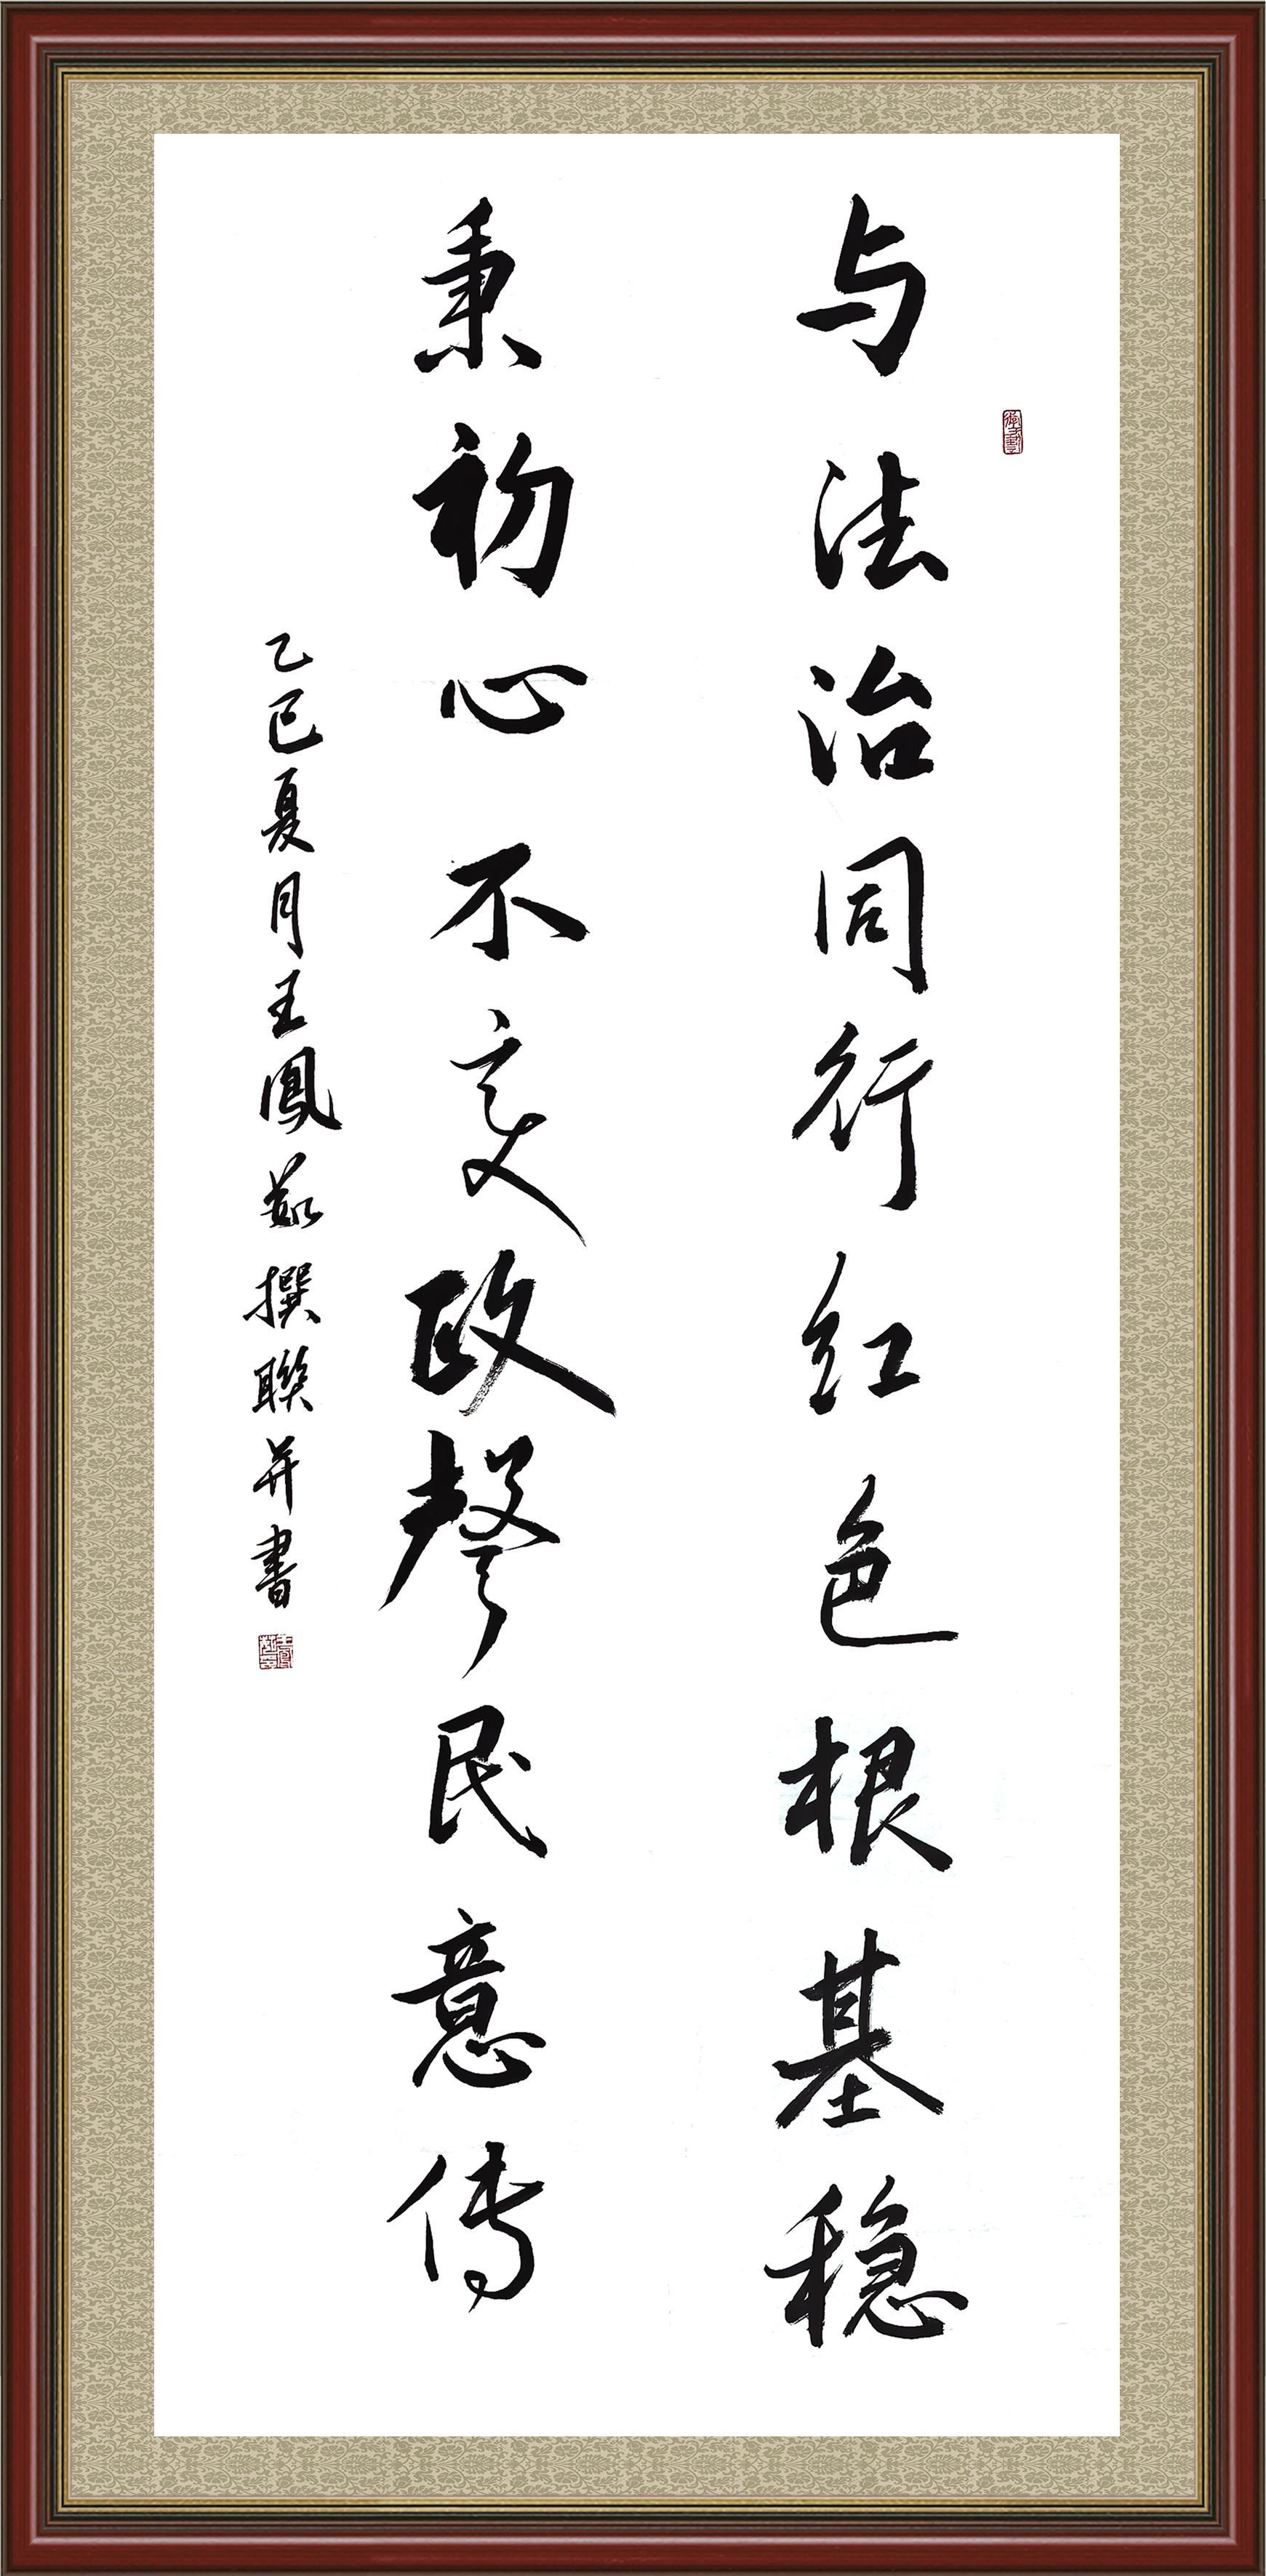 与法治同行红色根基稳
秉初心不变政聲民意傳
乙巳夏月王鳳茹撰聯并書